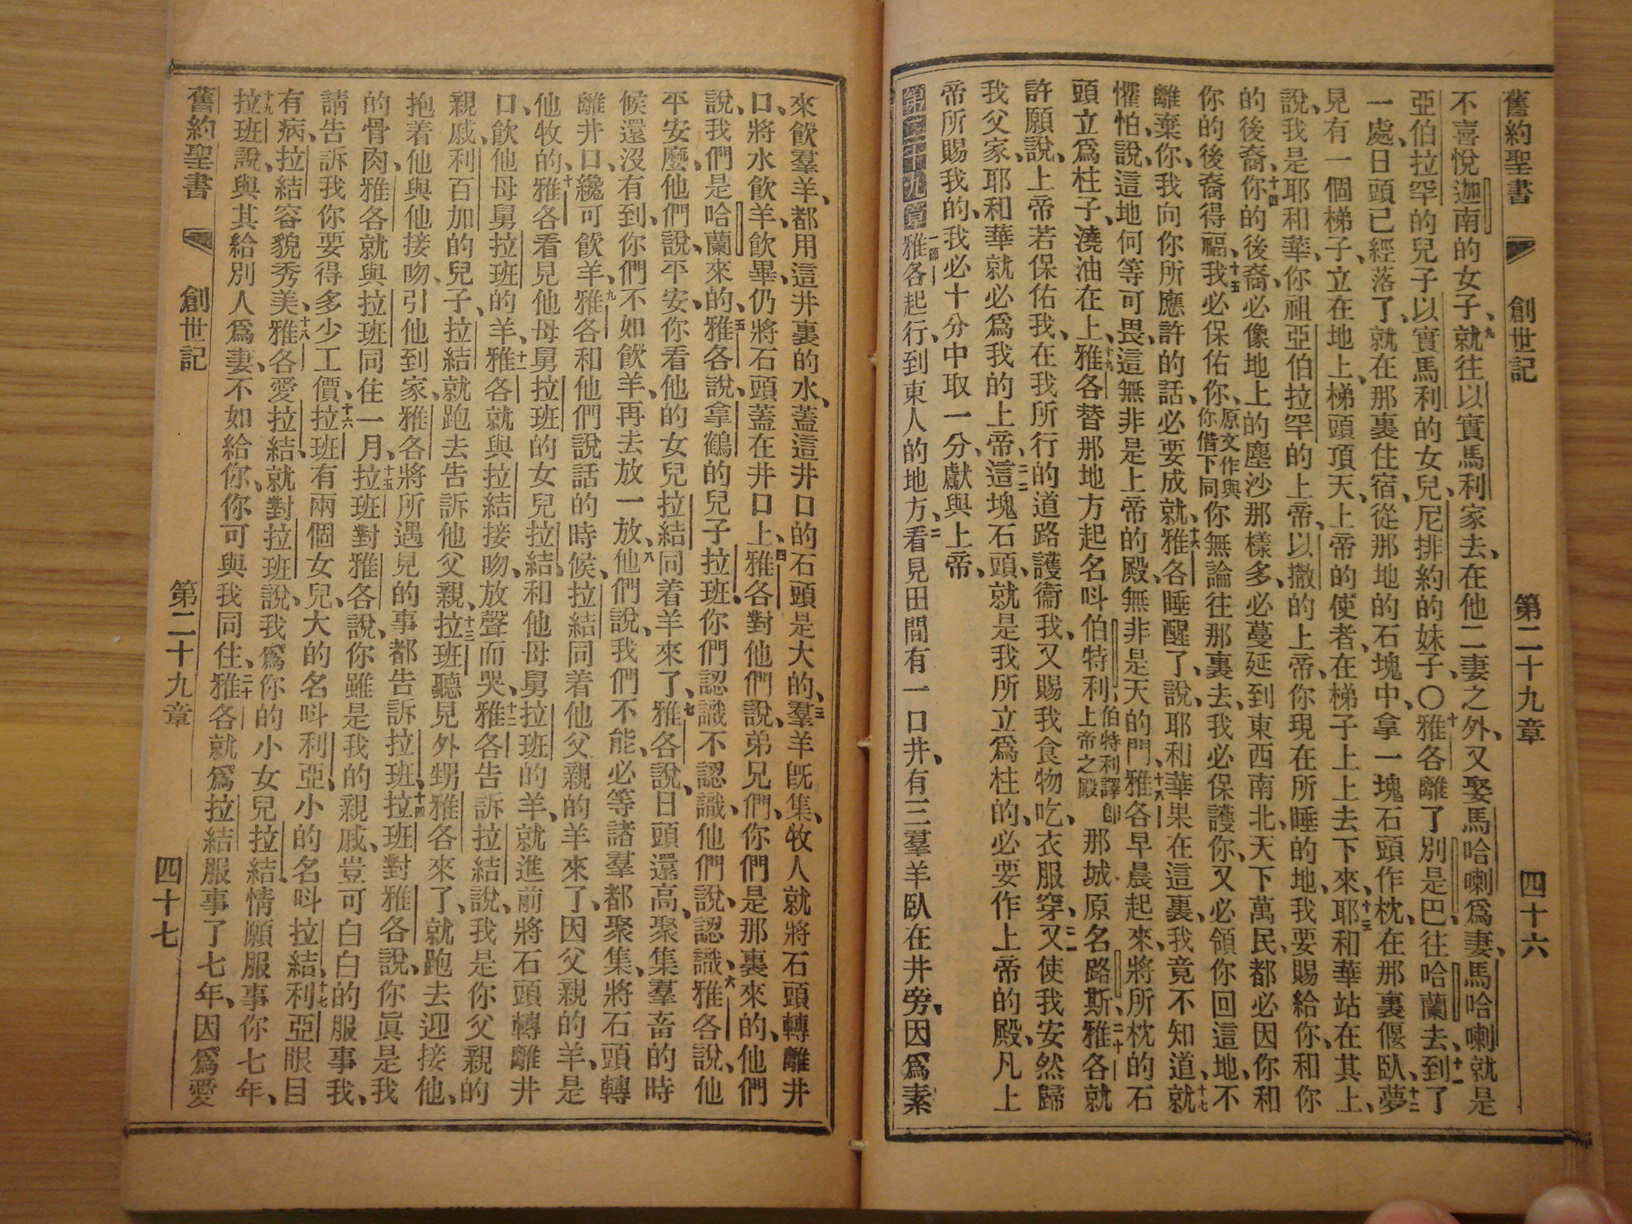 舊約聖書 創世記 第二十九章 四十六
不喜悅迦南的女子、九就往以實馬利家去、在他二妻之外、又娶馬哈喇爲妻、馬哈喇就是
亞伯拉罕的兒子以實馬利的女兒、尼排約的妹子、〇十雅各離了別是巴往哈蘭去、十一到了
一處、日頭已經落了、就在那裏住宿、從那地的石塊中、拿一塊石頭作枕、在那裏偃臥、十二夢
見有一個梯子、立在地上、梯頭頂天、上帝的使者、在梯子上上去下來、十三耶和華站在其上、
說、我是耶和華、你祖亞伯拉罕的上帝、以撒的上帝、你現在所睡的地、我要賜給你、和你
的後裔、十四你的後裔、必像地上的塵沙那樣多、必蔓延到東西南北、天下萬民、都必因你和
你的後裔得福、十五我必保佑你、原文作與你偕下同你無論往那裏去、我必保護你、又必領你回這地、不
離棄你、我向你所應許的話、必要成就、十六雅各睡醒了、說、耶和華果在這裏、我竟不知道、十七就
懼怕、說、這地何等可畏、這無非是上帝的殿、無非是天的門、十八雅各早晨起來、將所枕的石
頭立爲柱子、澆油在上、十九雅各替那地方起名呌伯特利、伯特利譯卽上帝之殿那城原名路斯、二十雅各就
許願說、上帝若保佑我、在我所行的道路護衞我、又賜我食物吃、衣服穿、二一又使我安然歸
我父家、耶和華就必爲我的上帝、二二這塊石頭、就是我所立爲柱的、必要作上帝的殿、凡上
帝所賜我的、我必十分中取一分、獻與上帝、
第二十九章 一節雅各起行、到東人的地方、二看見田間有一口井、有三羣羊臥在井旁、因爲素
來飮羣羊、都用這井裏的水、蓋這井口的石頭是大的、三羣羊旣集、牧人就將石頭轉離井
口、將水飮羊、飮畢、仍將石頭蓋在井口上、四雅各對他們說、弟兄們、你們是那裏來的、他們
說、我們是哈蘭來的、五雅各說、拿鶴的兒子拉班、你們認識不認識、他們說、認識、六雅各說、他
平安麼、他們說、平安、你看他的女兒拉結、同着羊來了、七雅各說、日頭還高、聚集羣畜的時
候還沒有到、你們不如飮羊、再去放一放、八他們說、我們不能、必等諸羣都聚集、將石頭轉
離井口、纔可飮羊、九雅各和他們說話的時候、拉結同着他父親的羊來了、因父親的羊、是
他牧的、十雅各看見他母舅拉班的女兒拉結、和他母舅拉班的羊、就進前將石頭轉離井
口、飮他母舅拉班的羊、十一雅各就與拉結接吻、放聲而哭、十二雅各告訴拉結說、我是你父親的
親戚、利百加的兒子、拉結就跑去告訴他父親、十三拉班聽見外甥雅各來了、就跑去迎接他、
抱着他、與他接吻、引他到家、雅各將所遇見的事都告訴拉班、十四拉班對雅各說、你眞是我
的骨肉、雅各就與拉班同住一月、十五拉班對雅各說、你雖是我的親戚、豈可白白的服事我、
請告訴我、你要得多少工價、十六拉班有兩個女兒、大的名呌利亞、小的名呌拉結、十七利亞眼目
有病、拉結容貌秀美、十八雅各愛拉結、就對拉班說、我爲你的小女兒拉結、情願服事你七年、
十九拉班說、與其給別人爲妻、不如給你、你可與我同住、二十雅各就爲拉結服事了七年、因爲愛
舊約聖書 創世記 第二十九章 四十七